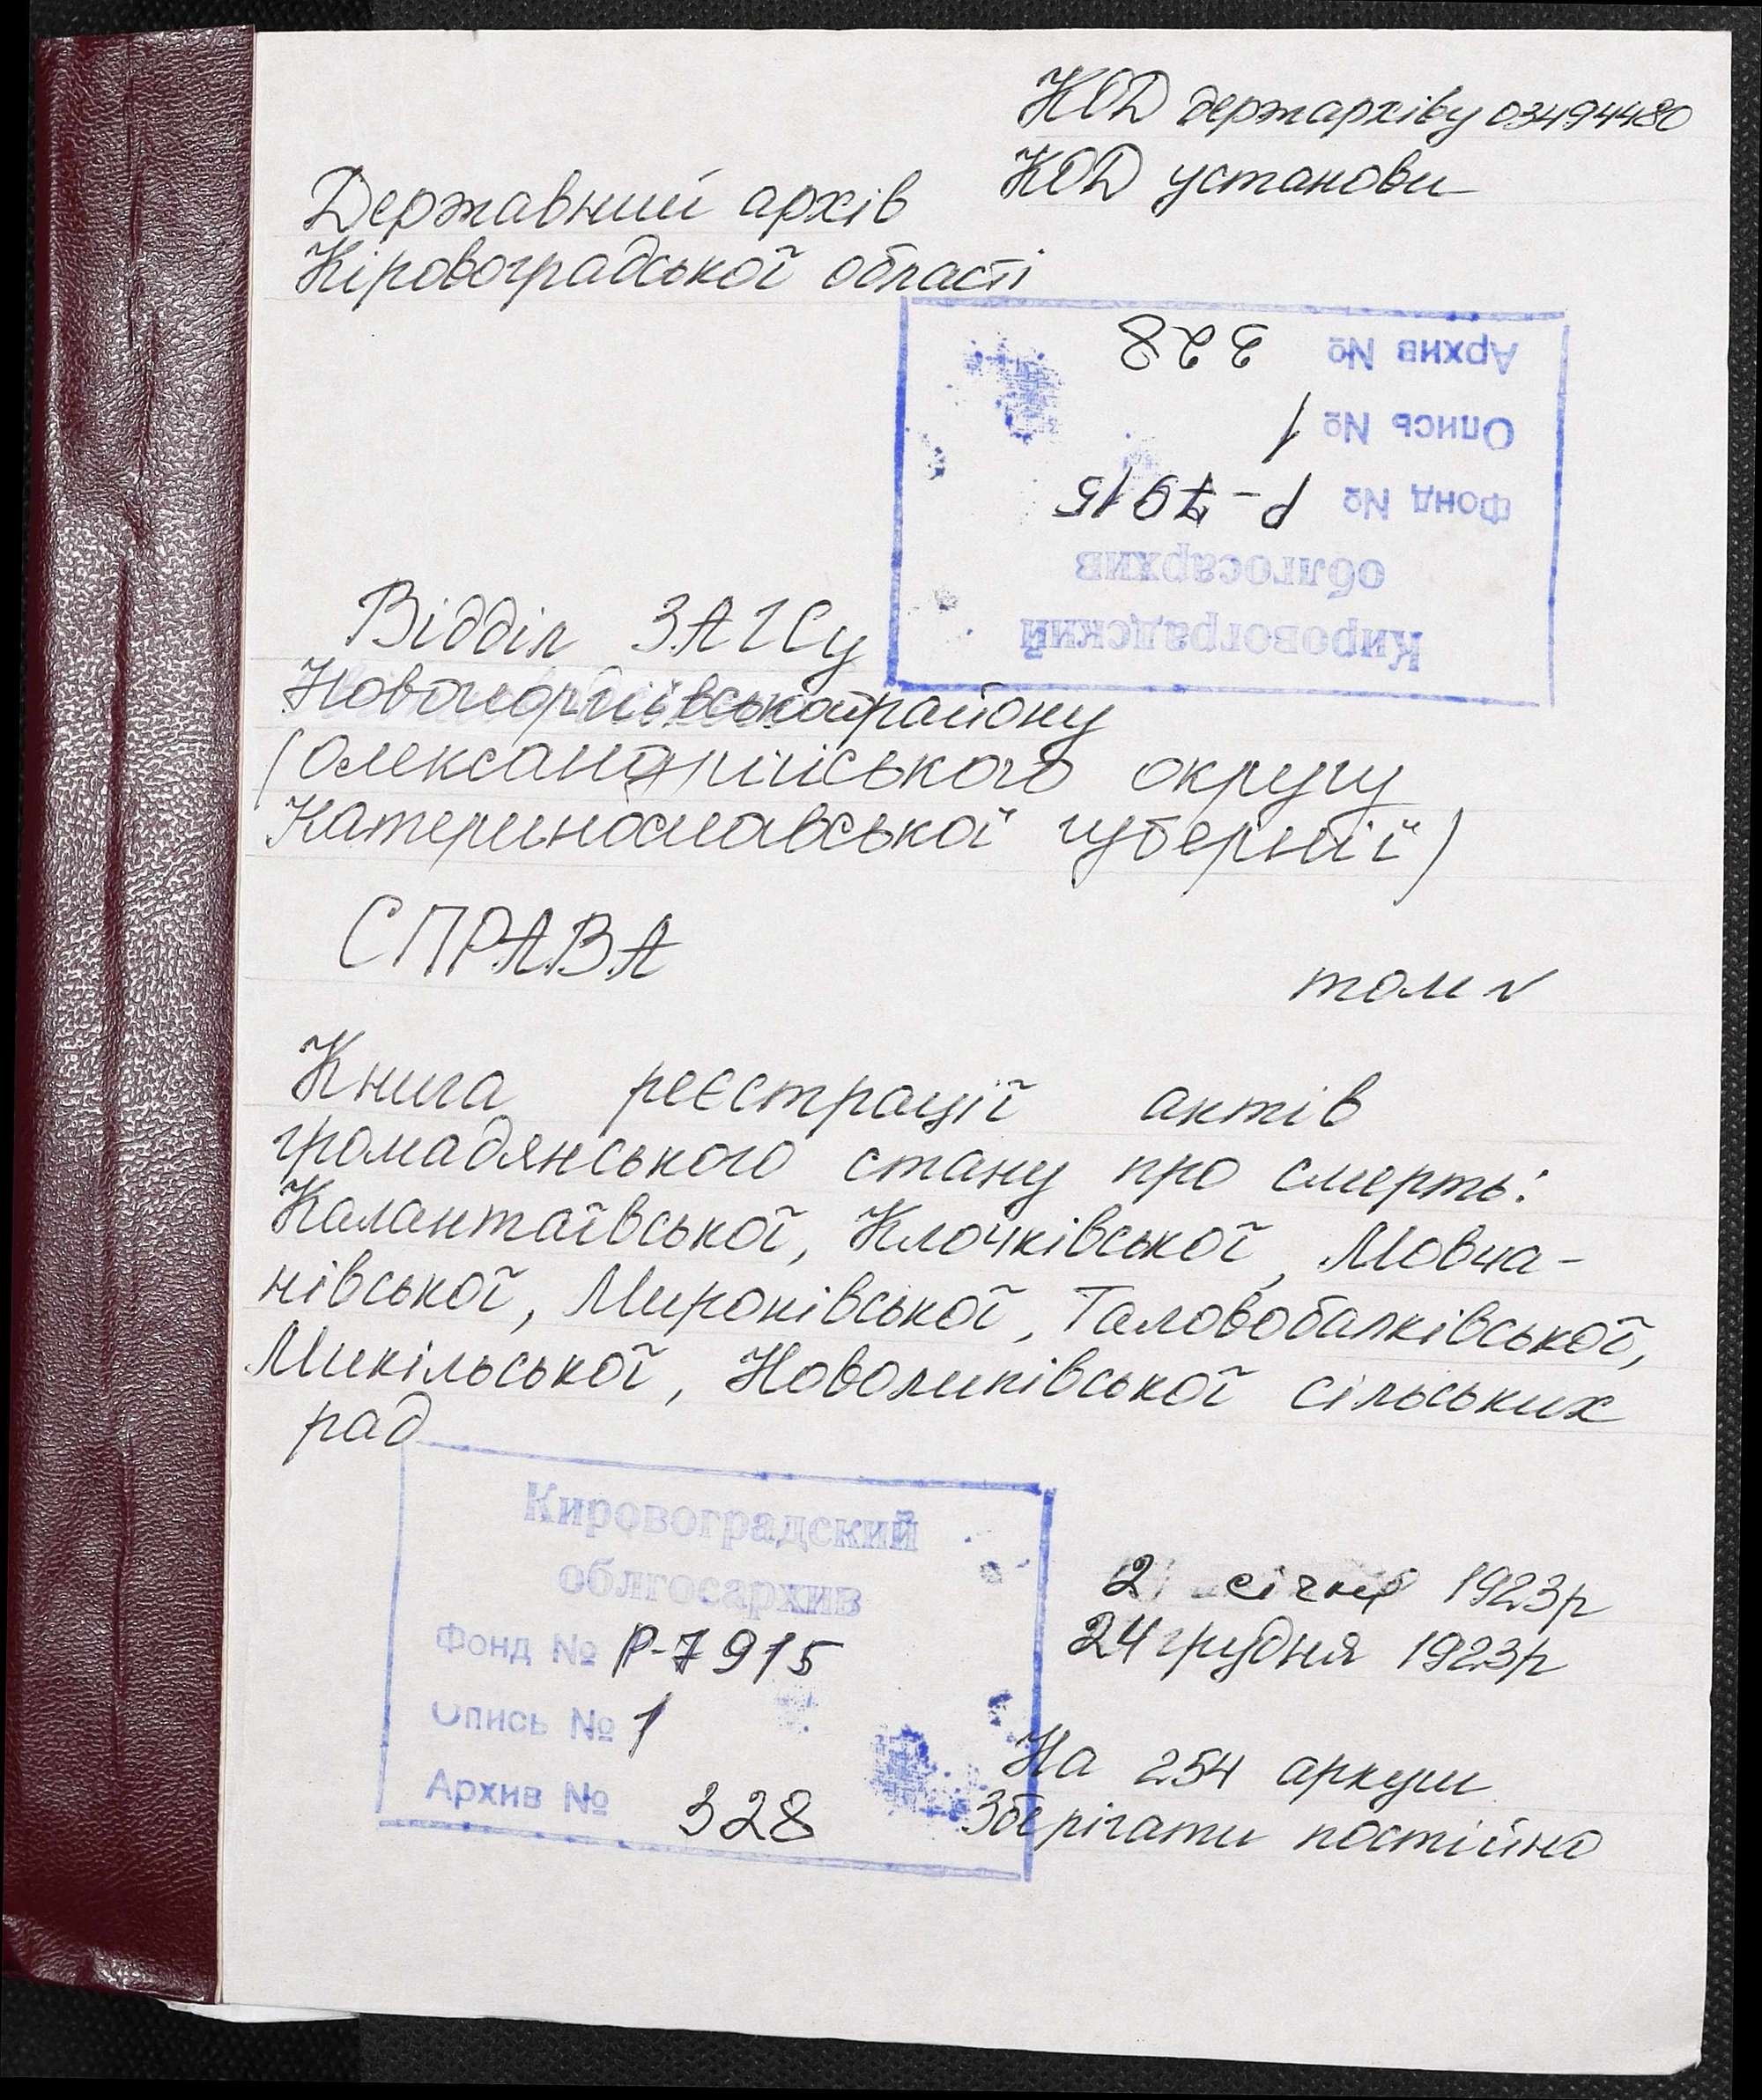 КОД держархіву 03494480
КОД установи
Державний архів
Кіровоградської області
Архив № 328
Опись № 1
Фонд № Р-7915
облгосархив
Кировоградский
Відділ ЗАГСу
Новогеоргіївського району
(Олександрійського округу
Катеринославської губернії)
СПРАВА
том №
Книга реєстрації актів
громадянського стану про смерть:
Калантаївської, Клочківської, Мовча-
нівської, Миронівської, Таловобалківської,
Микільської, Новолипівської сільських
рад
Кировоградский
облгосархив
Фонд № Р-7915
Опись № 1
Архив № 328
2 січня 1923р
24 грудня 1923р
На 254 аркуш
Зберігати постійно